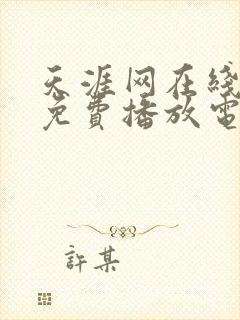 天涯网在线
免費播放電
許某